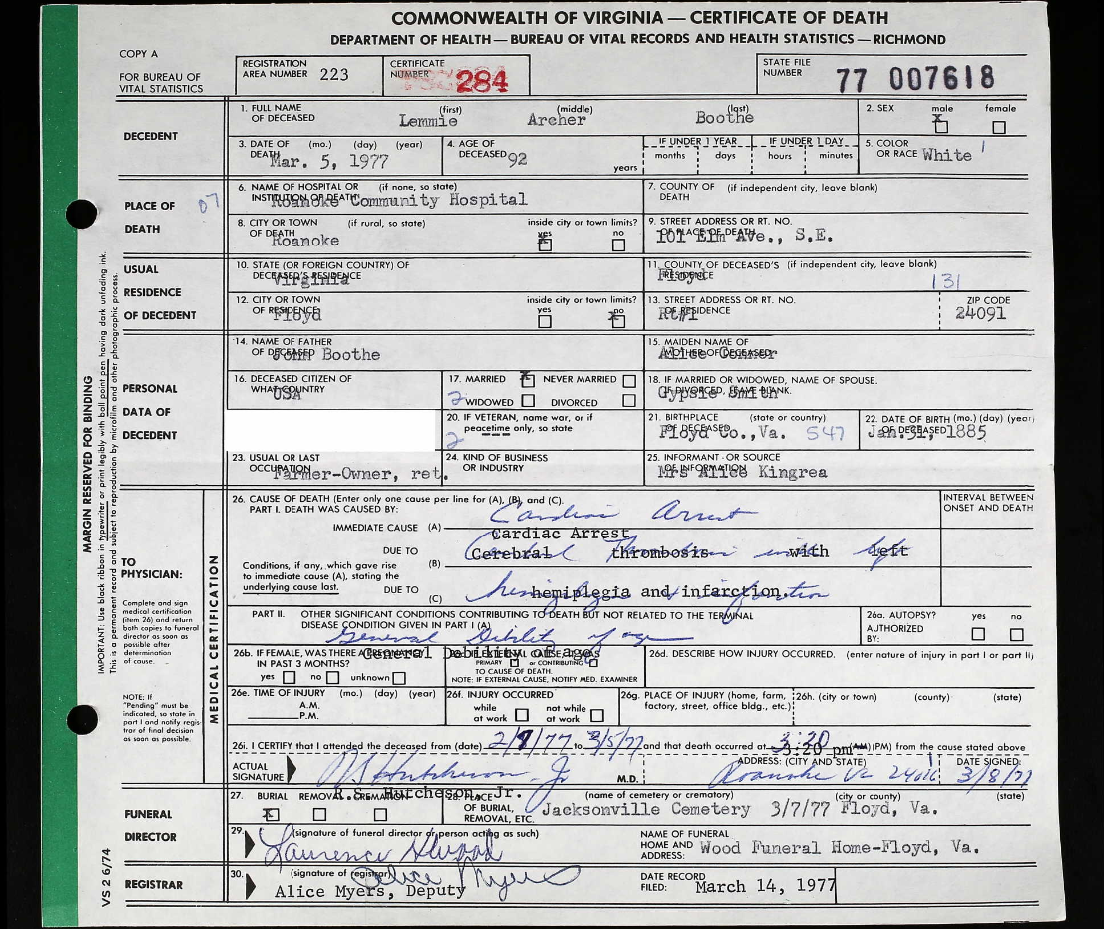 COMMONWEALTH OF VIRGINIA — CERTIFICATE OF DEATH
DEPARTMENT OF HEALTH — BUREAU OF VITAL RECORDS AND HEALTH STATISTICS — RICHMOND
COPY A
FOR BUREAU OF
VITAL STATISTICS
REGISTRATION
AREA NUMBER 223
CERTIFICATE
NUMBER 284
STATE FILE
NUMBER 77 007618
DECEDENT
1. FULL NAME (first) (middle) (last)
OF DECEASED Lemmie Archer Boothe
2. SEX male female
X
3. DATE OF (mo.) (day) (year)
DEATH Mar. 5, 1977
4. AGE OF
DECEASED 92 years
IF UNDER 1 YEAR IF UNDER 1 DAY
months days hours minutes
5. COLOR
OR RACE White 1
PLACE OF
DEATH
07
6. NAME OF HOSPITAL OR (if none, so state)
INSTITUTION OF DEATH Roanoke Community Hospital
7. COUNTY OF (if independent city, leave blank)
DEATH
8. CITY OR TOWN (if rural, so state) inside city or town limits?
OF DEATH Roanoke yes no
X
9. STREET ADDRESS OR RT. NO.
OF PLACE OF DEATH 101 Elm Ave., S.E.
USUAL
RESIDENCE
OF DECEDENT
10. STATE (OR FOREIGN COUNTRY) OF
DECEASED'S RESIDENCE Virginia
11. COUNTY OF DECEASED'S (if independent city, leave blank)
RESIDENCE Floyd 131
12. CITY OR TOWN inside city or town limits?
OF RESIDENCE Floyd yes no
X
13. STREET ADDRESS OR RT. NO. ZIP CODE
OF RESIDENCE Rt#1 24091
PERSONAL
DATA OF
DECEDENT
14. NAME OF FATHER
OF DECEASED John Boothe
15. MAIDEN NAME OF
MOTHER OF DECEASED Alice Conner
16. DECEASED CITIZEN OF
WHAT COUNTRY USA
17. MARRIED X NEVER MARRIED
2 WIDOWED DIVORCED
18. IF MARRIED OR WIDOWED, NAME OF SPOUSE.
IF DIVORCED, LEAVE BLANK. Gypsie Smith
20. IF VETERAN, name war, or if
peacetime only, so state
2
21. BIRTHPLACE (state or country)
OF DECEASED Floyd Co., Va. 547
22. DATE OF BIRTH (mo.) (day) (year)
OF DECEASED Jan. 31, 1885
23. USUAL OR LAST
OCCUPATION Farmer-Owner, ret.
24. KIND OF BUSINESS
OR INDUSTRY
25. INFORMANT - OR SOURCE
OF INFORMATION Mrs Alice Kingrea
MARGIN RESERVED FOR BINDING
IMPORTANT: Use black ribbon in typewriter or print legibly with ball point pen having dark unfading ink.
This is a permanent record and subject to reproduction by microfilm and other photographic process.
TO
PHYSICIAN:
Complete and sign
medical certification
(item 26) and return
both copies to funeral
director as soon as
possible after
determination
of cause.
NOTE: If
"Pending" must be
indicated, so state in
part I and notify regis-
trar of final decision
as soon as possible.
MEDICAL CERTIFICATION
26. CAUSE OF DEATH (Enter only one cause per line for (A), (B), and (C).
PART I. DEATH WAS CAUSED BY: Cardiac Arrest
INTERVAL BETWEEN
ONSET AND DEATH
IMMEDIATE CAUSE (A) Cardiac Arrest
DUE TO Cerebral thrombosis with left
Conditions, if any, which gave rise
to immediate cause (A), stating the
underlying cause last.
(B)
DUE TO hemiplegia and infarction
(C)
PART II. OTHER SIGNIFICANT CONDITIONS CONTRIBUTING TO DEATH BUT NOT RELATED TO THE TERMINAL
DISEASE CONDITION GIVEN IN PART I (A)
General Debility of age
General Debility of age
26a. AUTOPSY? yes no
AUTHORIZED
BY:
26b. IF FEMALE, WAS THERE A PREGNANCY
IN PAST 3 MONTHS?
yes no unknown
PRIMARY or CONTRIBUTING
TO CAUSE OF DEATH.
NOTE: IF EXTERNAL CAUSE, NOTIFY MED. EXAMINER
26d. DESCRIBE HOW INJURY OCCURRED. (enter nature of injury in part I or part II)
26e. TIME OF INJURY (mo.) (day) (year)
A.M.
P.M.
26f. INJURY OCCURRED
while at work not while at work
26g. PLACE OF INJURY (home, farm,
factory, street, office bldg., etc.)
26h. (city or town) (county) (state)
26i. I CERTIFY that I attended the deceased from (date) 2/9/77 to 3/5/77 and that death occurred at 3:20 3:20 pm (AM)(PM) from the cause stated above
ACTUAL
SIGNATURE RS Hutcheson, Jr M.D.
R.S. Hutcheson, Jr.
ADDRESS: (CITY AND STATE) Roanoke Va 24016
DATE SIGNED: 3/8/77
FUNERAL
DIRECTOR
27. BURIAL REMOVAL CREMATION
X
28. PLACE
OF BURIAL,
REMOVAL, ETC.
(name of cemetery or crematory) (city or county) (state)
Jacksonville Cemetery 3/7/77 Floyd, Va.
29. (signature of funeral director or person acting as such)
NAME OF FUNERAL
HOME AND
ADDRESS: Wood Funeral Home-Floyd, Va.
REGISTRAR
30. (signature of registrar)
Alice Myers
Alice Myers, Deputy
DATE RECORD
FILED: March 14, 1977
VS 2 6/74